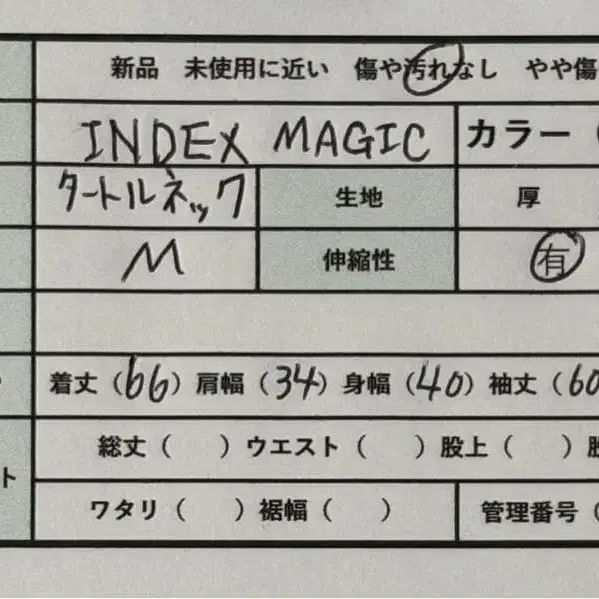 新品 未使用に近い 傷や汚れなし やや傷
INDEX MAGIC カラー（
タートルネック 生地 厚
M 伸縮性 有
着丈（66）肩幅（34）身幅（40）袖丈（60
総丈（ ）ウエスト（ ）股上（ ）股
ト
ワタリ（ ）裾幅（ ） 管理番号（